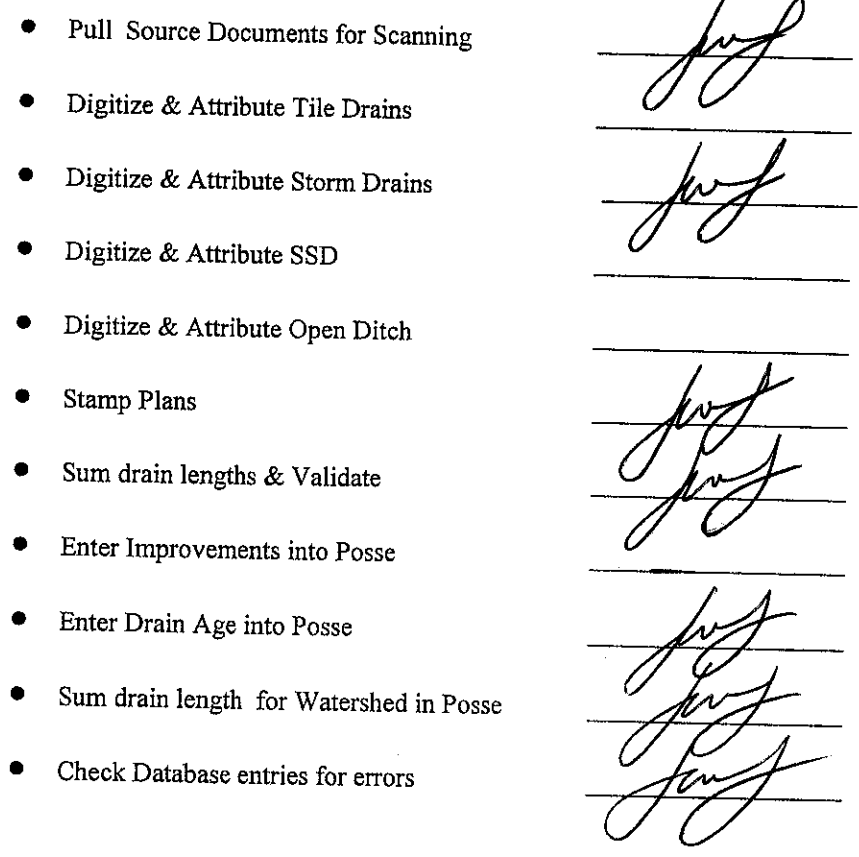 • Pull Source Documents for Scanning
• Digitize & Attribute Tile Drains
• Digitize & Attribute Storm Drains
• Digitize & Attribute SSD
• Digitize & Attribute Open Ditch
• Stamp Plans
• Sum drain lengths & Validate
• Enter Improvements into Posse
• Enter Drain Age into Posse
• Sum drain length for Watershed in Posse
• Check Database entries for errors